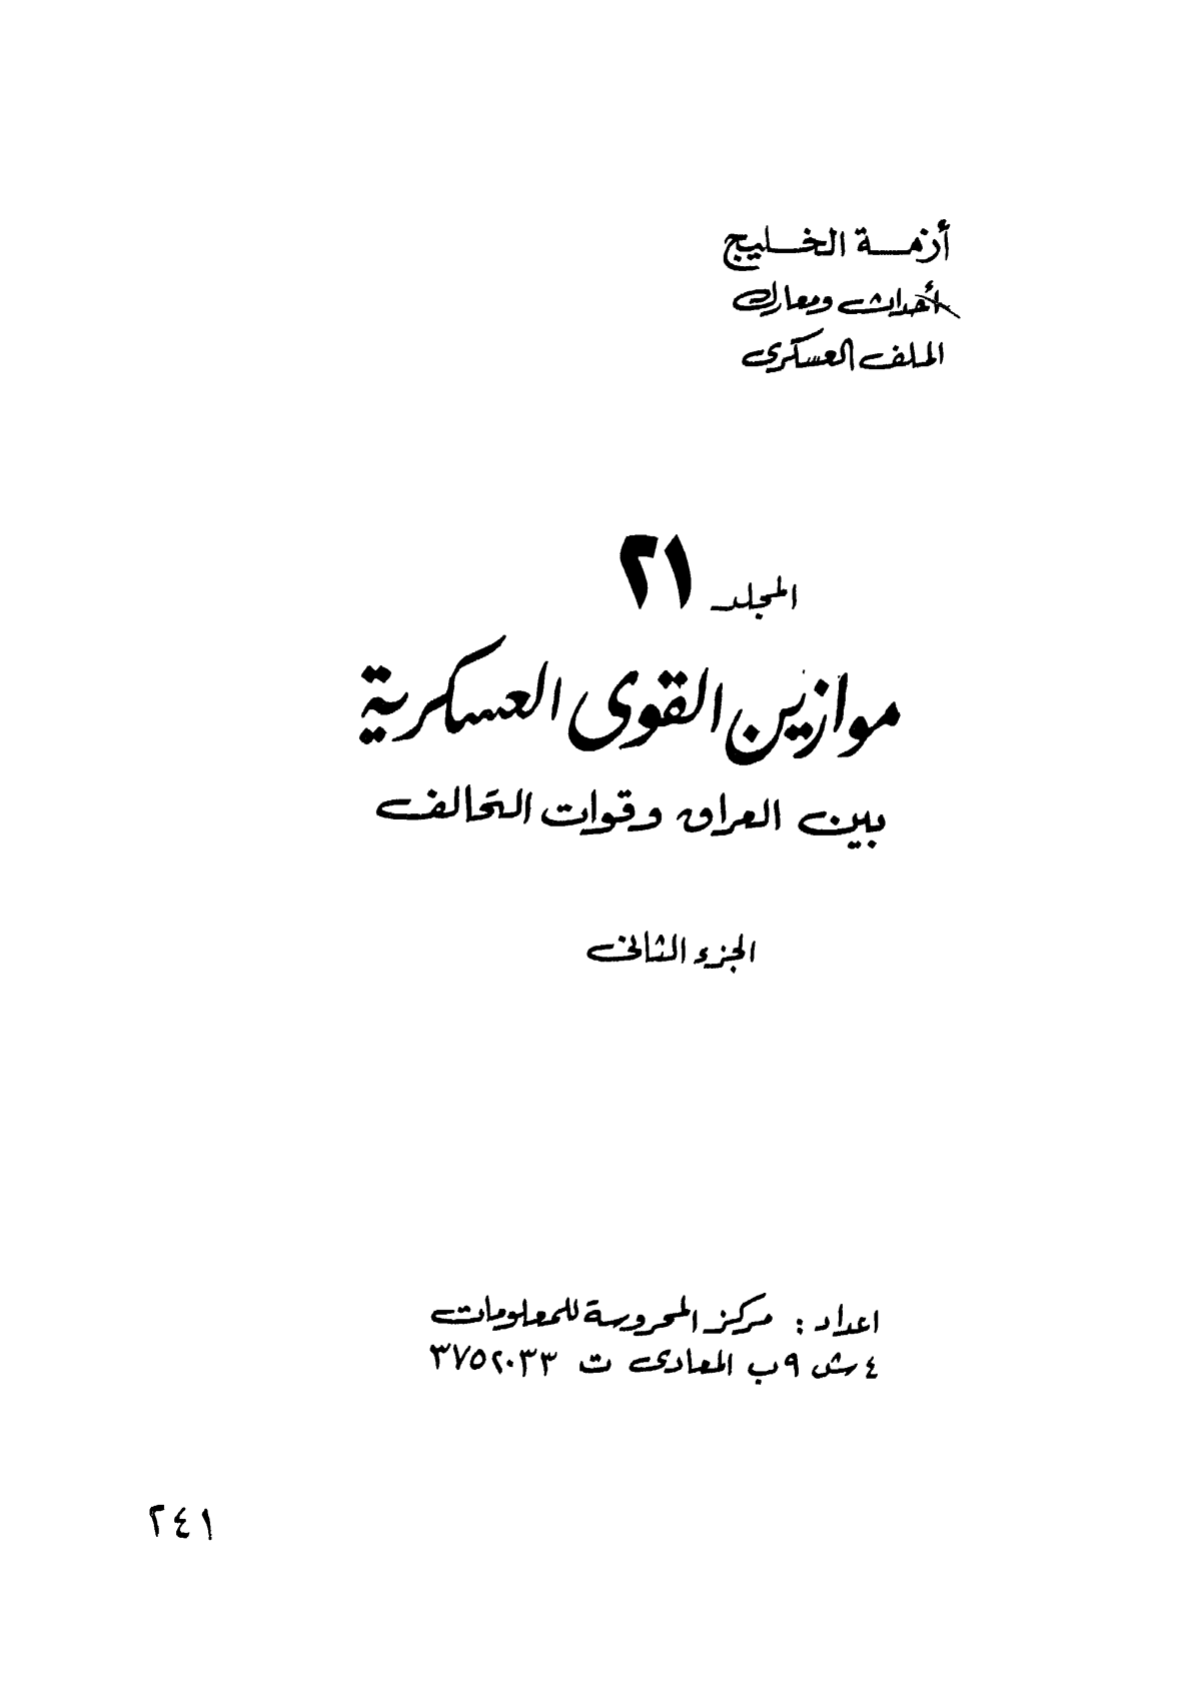 أزمة الخليج
أحداث ومعارك
الملف العسكرى
المجلد ٢١
موازين القوى العسكرية
بين العراق وقوات التحالف
الجزء الثانى
اعداد : مركز المحروسة للمعلومات
٤ ش ٩ب المعادى ت ٣٧٥٢٠٣٣
٢٤١